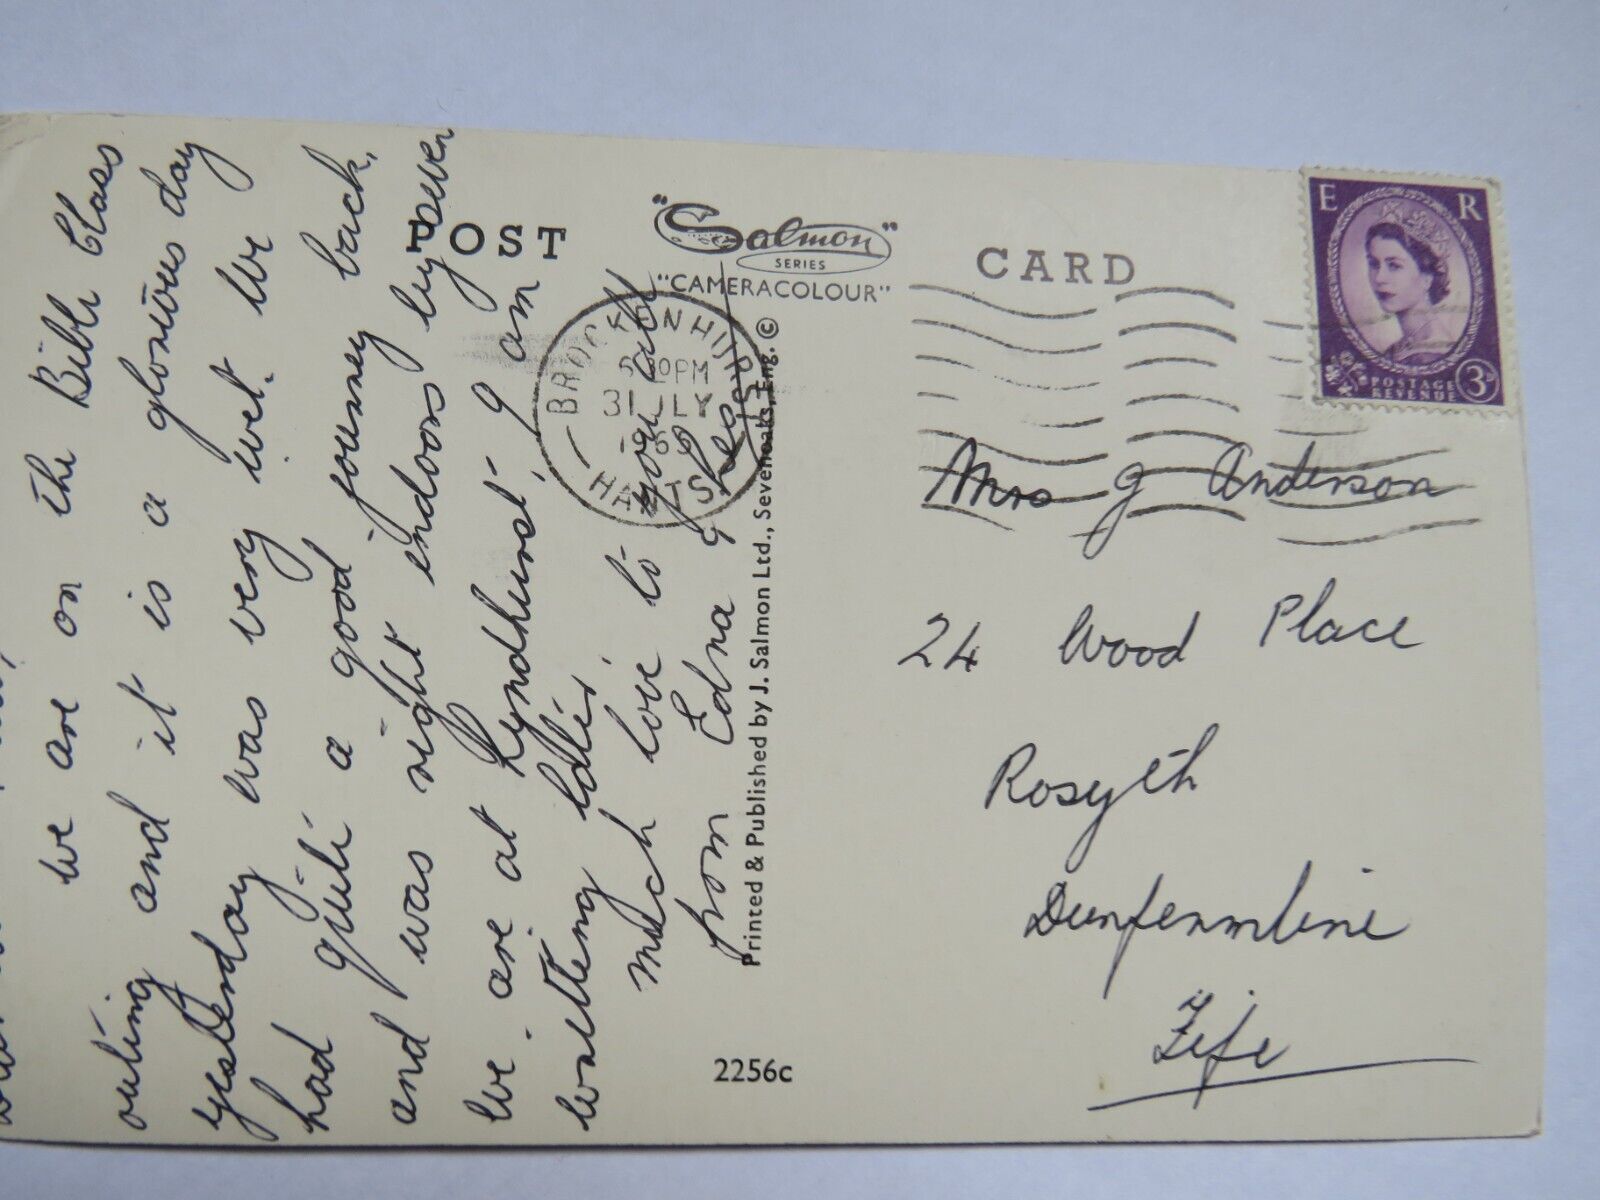 we are on the Bible Class
outing and it is a glorious day
yesterday was very wet. We
had quite a good journey back,
and was right endoors by seven
We are at Lyndhurst, I am
writting latter,
much love to you all
from Edna &
POST CARD
"Salmon"
SERIES
"CAMERACOLOUR"
BROCKENHURST
HANTS.
PM
31 JLY
E R
POSTAGE
REVENUE
3D
Mrs J Anderson
24 Wood Place
Rosyth
Dunfermline
Fife
Printed & Published by J. Salmon Ltd., Sevenoaks, Eng. ©
2256c